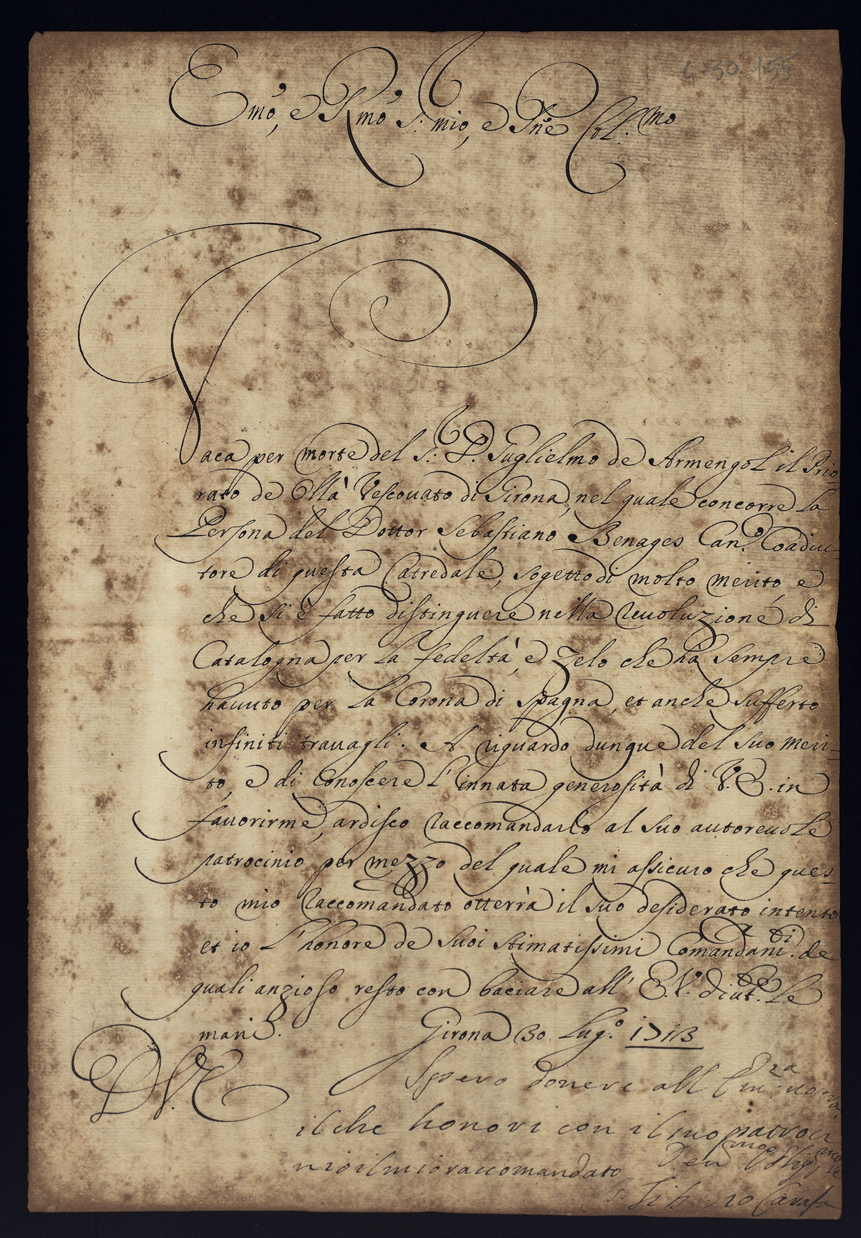 6-30-155
Emo, e Rmo S: mio, e Pne Col.mo
Vaca per morte del S: D. Guglielmo de Armengol il Prio
rato de Ollà Vescovato di Girona, nel quale concorre la
Persona del Dottor Sebastiano Benages Can.º Coadiu-
tore di questa Catredale, sogetto di molto merito, e
che si è fatto distinguere nella revoluzione di
Catalogna per la fedeltà, e zelo che ha sempre
havuto per la Corona di Spagna, et anche sufferto
infiniti travagli. A riguardo dunque del suo meri-
to, e di conoscere l'innata generosità di V.E. in
favorirme, ardisco raccomandarlo al suo autorevole
patrocinio per mezzo del quale mi assicuro che ques-
to mio raccomandato otterrà il suo desiderato intento
et io l'honore de suoi stimatissimi Comandam.ti de
quali anzioso resto con baciare all' E.V. divt.te le
mani. Girona 30 Lug.º 1713
D.V.E.
Spero dovere all Em.za vostra
il che honori con il suo patroci
nio il mio raccomandato
Tiberio Carafa